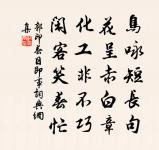 鳥咏短長句
花呈赤白章
化工非不巧
閑客笑春忙
郭印春日即事詞典網
集